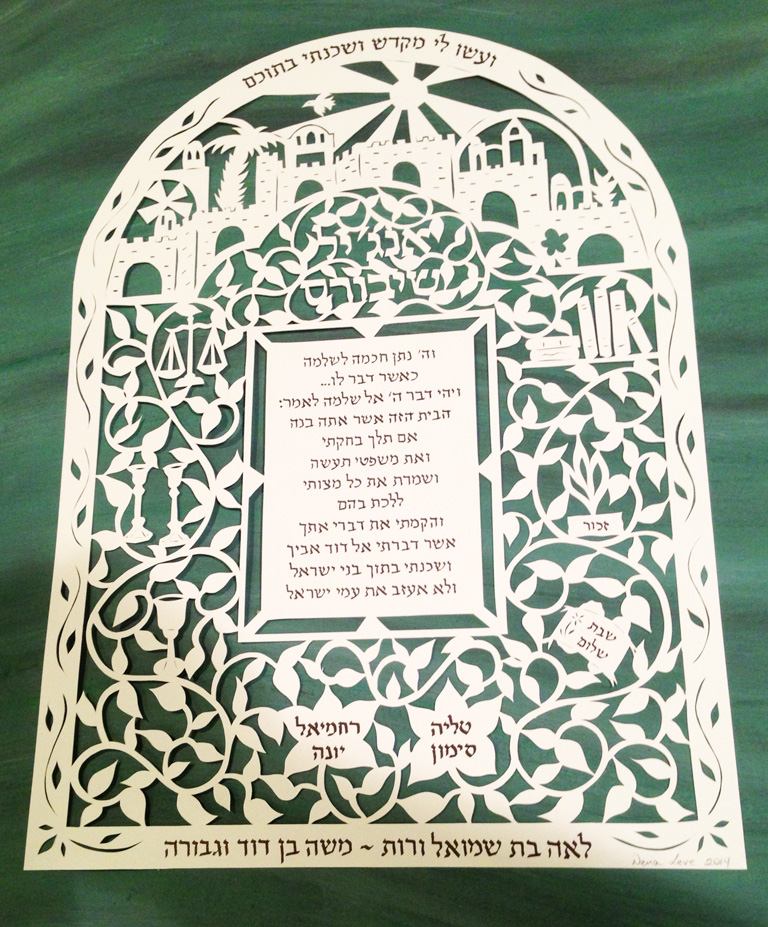 ועשו לי מקדש ושכנתי בתוכם
אנג'יל
שיבורס
וה' נתן חכמה לשלמה
כאשר דבר לו...
ויהי דבר ה' אל שלמה לאמר:
הבית הזה אשר אתה בנה
אם תלך בחקתי
ואת משפטי תעשה
ושמרת את כל מצותי
ללכת בהם
והקמתי את דברי אתך
אשר דברתי אל דוד אביך
ושכנתי בתוך בני ישראל
ולא אעזב את עמי ישראל
זכור
שבת
שלום
רחמיאל
יונה
טליה
סימון
לאה בת שמואל ורות ~ משה בן דוד וגבורה
Dena Leve 2014